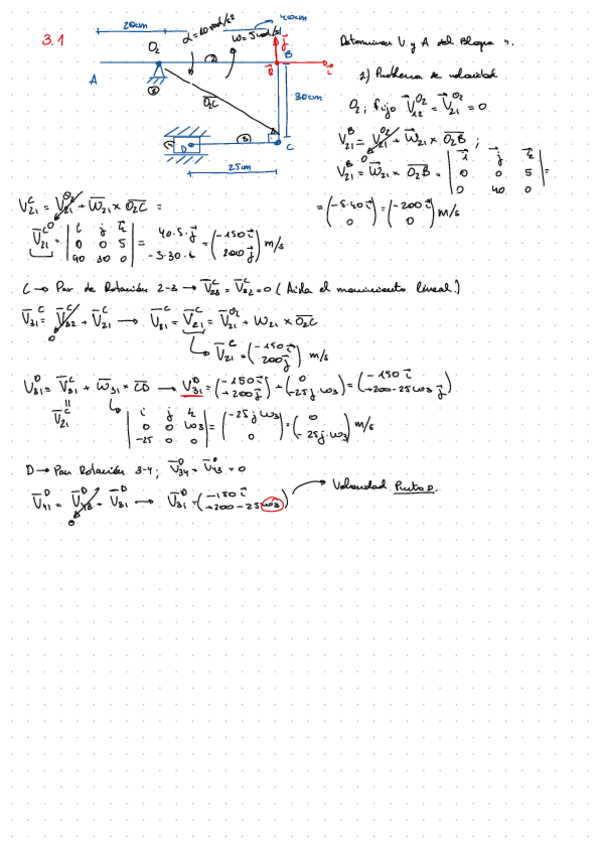 3.1
20cm
α=10rad/s²
ω=5rad/s
40cm
O₂
A
B
30cm
O₂C
D
C
25cm
Determinar V y A del Bloque 4.
1) Problema de velocidad
O₂; fijo V₁₂^O₂ = V₂₁^O₂ = 0
V₂₁^B = V₂₁^O₂ + W₂₁ x O₂B ;
V₂₁^B = W₂₁ x O₂B = | i j k | 0 0 5 | 0 40 0 | =
= (-5·40 i / 0) = (-200 i / 0) m/s
V₂₁^C = V₂₁^O₂ + W₂₁ x O₂C =
V₂₁^C = | i j k | 0 0 5 | 40 30 0 | = 40·5·j - 5·30·i = (-150 i / 200 j) m/s
C → Par de Rotación 2-3 → V₂₃^C = V₃₂^C = 0 (Aísla el movimiento lineal.)
V₃₁^C = V₃₂^C + V₂₁^C → V₃₁^C = V₂₁^C = V₂₁^O₂ + W₂₁ x O₂C
V₂₁^C = (-150 i / 200 j) m/s
V₃₁^D = V₃₁^C + W₃₁ x CD → V₃₁^D = (-150 i / +200 j) + (0 / -25j·ω3) = (-150 i / +200-25ω3 j)
V₂₁^C | i j k | 0 0 ω3 | -25 0 0 | = (-25j ω3 / 0) = (0 / -25j·ω3) m/s
D → Par Rotación 3-4; V₃₄^D = V₄₃^D = 0
V₄₁^D = V₄₃^D + V₃₁^D → V₃₁^D = (-150 i / +200-25ω3) → Velocidad Punto D.